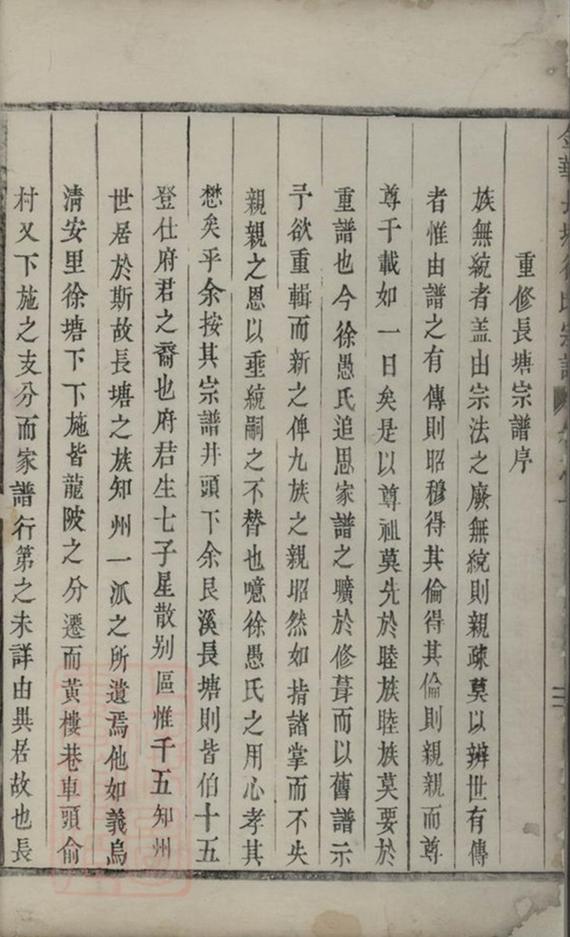 重修長塘宗譜序
族無統者盖由宗法之廢無統則親疎莫以辨世有傳
者惟由譜之有傳則昭穆得其倫得其倫則親親而尊
尊千載如一日矣是以尊祖莫先於睦族睦族莫要於
重譜也今徐愚氏追思家譜之曠於修葺而以舊譜示
予欲重輯而新之俾九族之親昭然如指諸掌而不失
親親之恩以垂統嗣之不替也噫徐愚氏之用心孝其
懋矣乎余按其宗譜井頭下余艮溪長塘則皆伯十五
登仕府君之裔也府君生七子星散别區惟千五知州
世居於斯故長塘之族知州一派之所遺焉他如義烏
清安里徐塘下下施皆龍陂之分遷而黃樓巷車頭俞
村又下施之支分而家譜行第之未詳由異居故也長